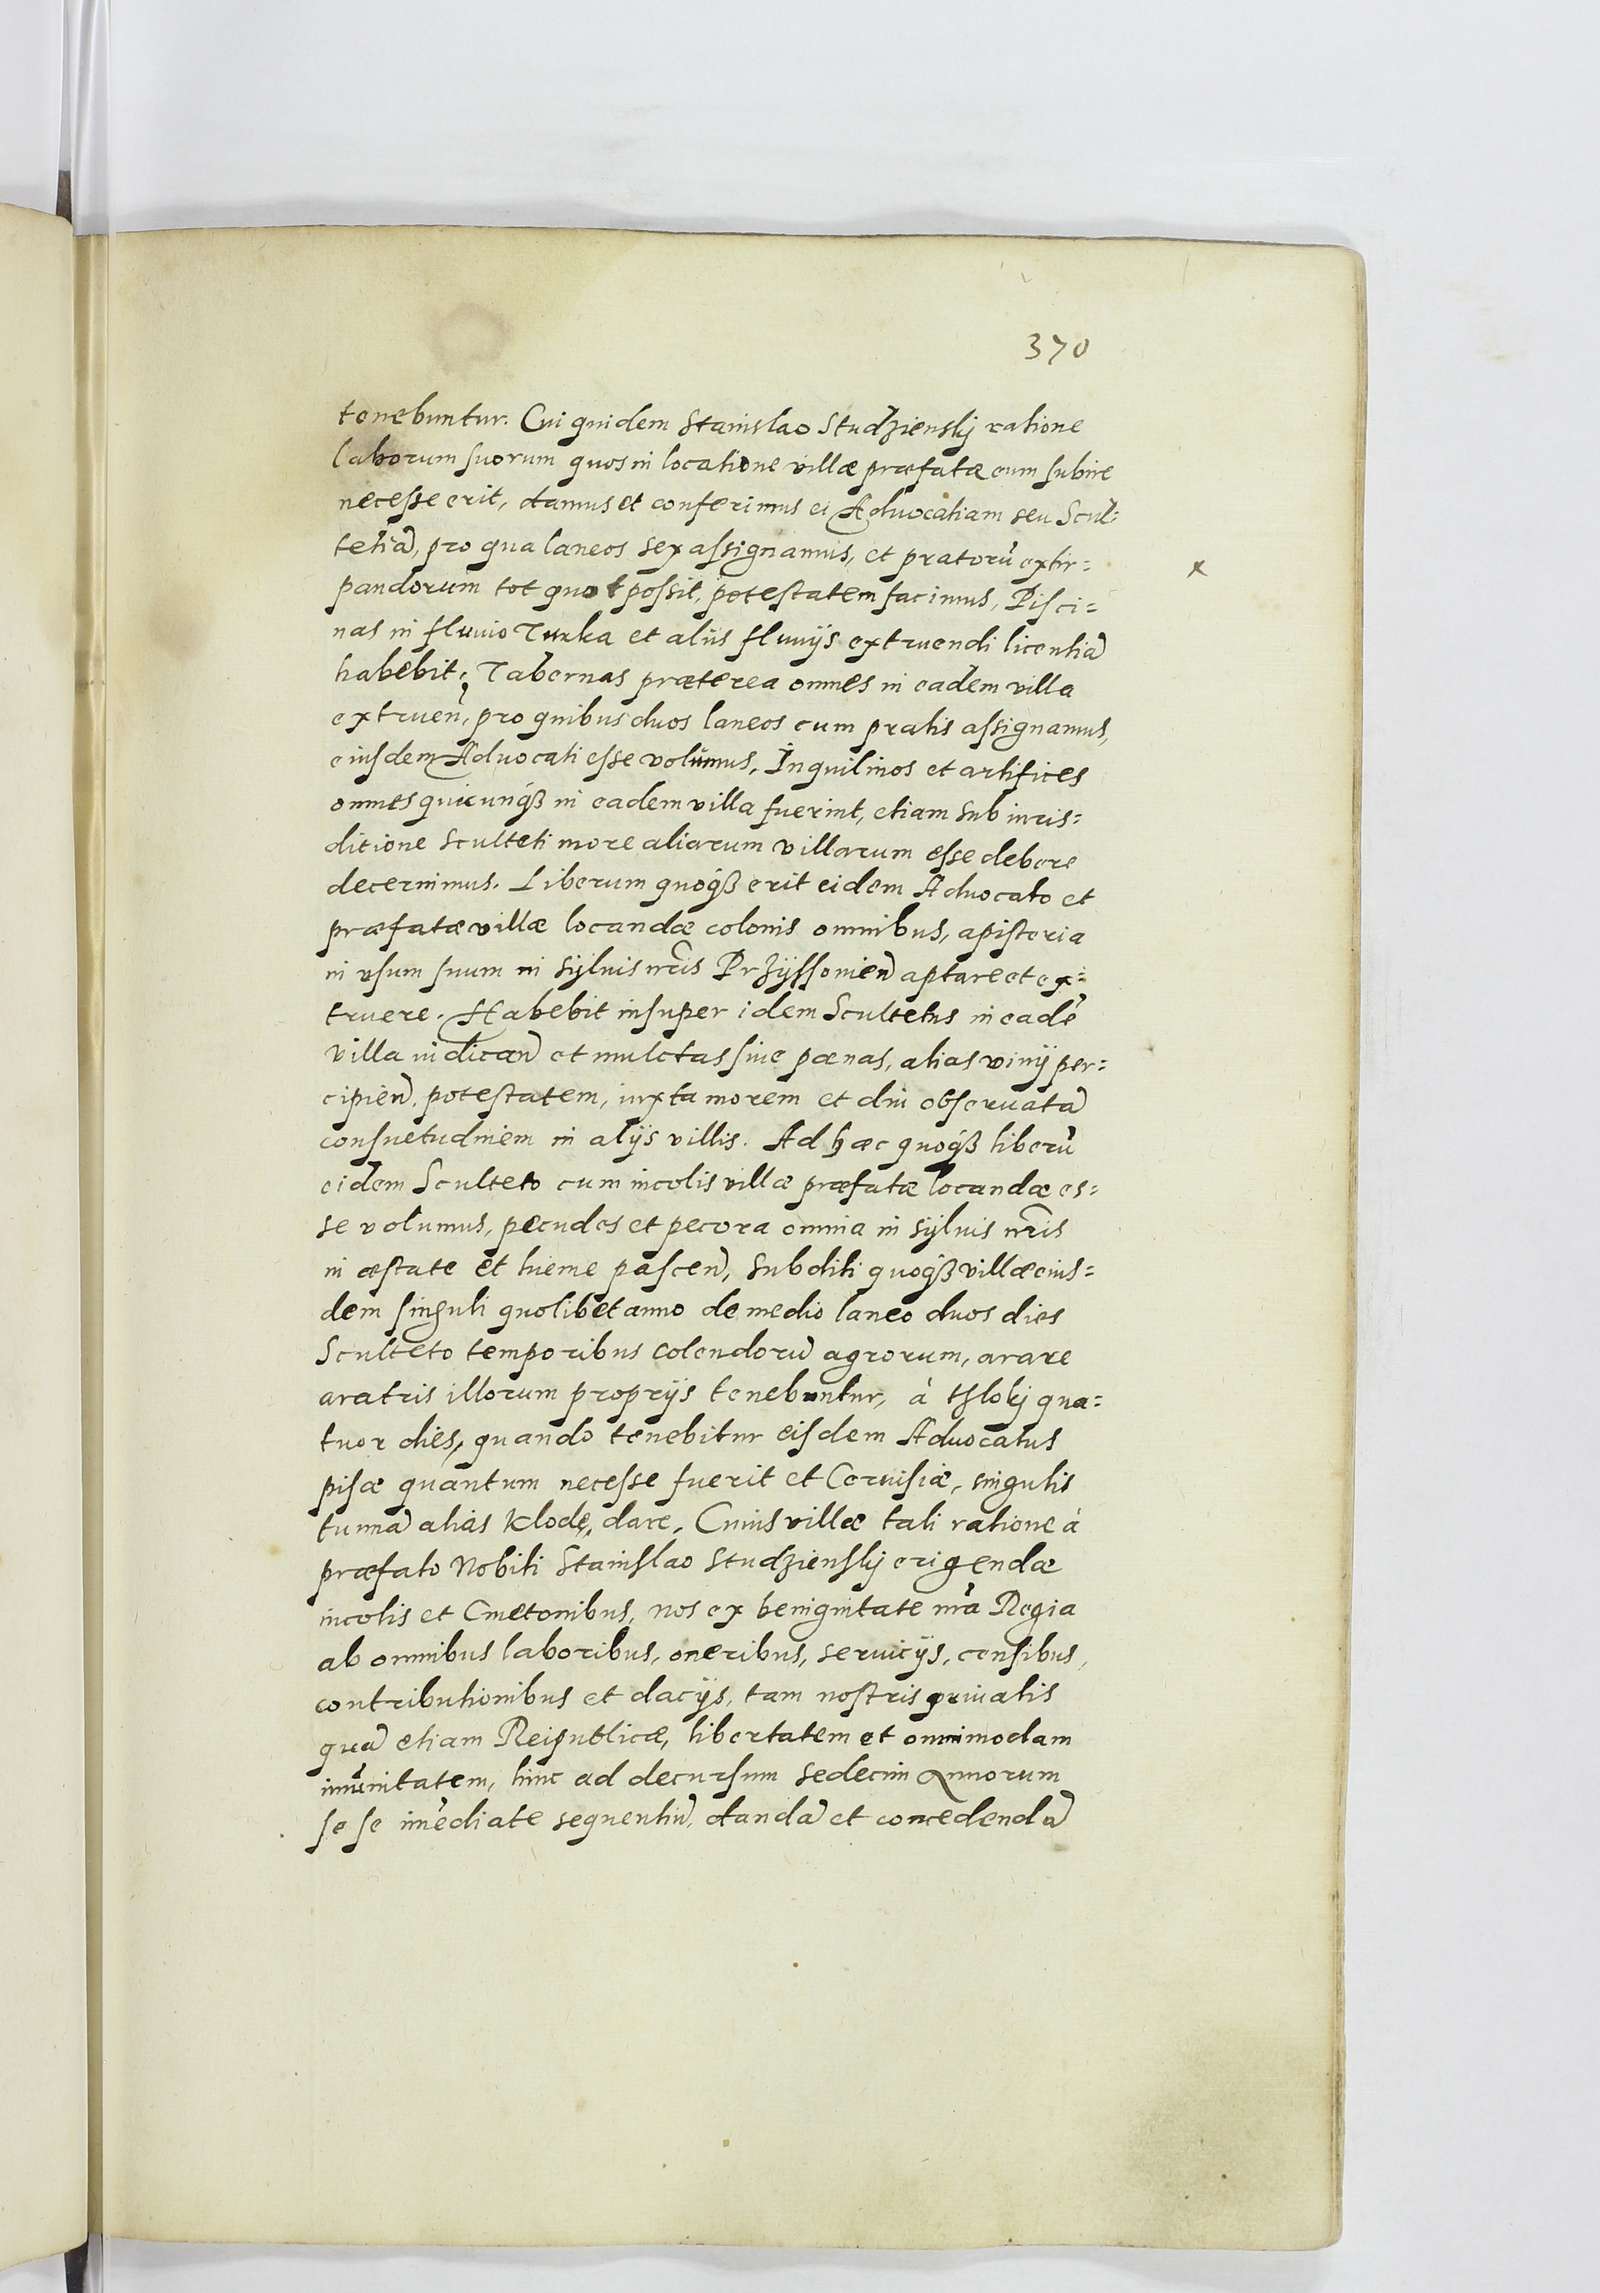 370
tenebuntur. Cui quidem Stanislao Studzienskj ratione
laborum suorum quos in locatione villæ præfatæ eum subire
necesse erit, damus et conferimus ei Aduocatiam seu Scul=
tetiã, pro qua laneos sex assignamus, et pratorũ extir=
pandorum tot quot possit, potestatem facimus, Pisci=
nas in fluuio Turka et aliis fluuijs extruendi licentiã
habebit; Tabernas præterea omnes in eadem villa
extruen̄, pro quibus duos laneos cum pratis assignamus,
eiusdem Aduocati esse volumus, Inquilinos et artifices
omnes quicunqꝫ in eadem villa fuerint, etiam sub iuris=
ditione Sculteti more aliarum villarum esse debere
decernimus. Liberum quoqꝫ erit eidem Aduocato et
præfatæ villæ locandæ colonis omnibus, apistoria
in vsum suum in syluis nr̃is Przyssonien̄ aptare et ex=
truere. Habebit insuper idem Scultetus in eadẽ
villa iudican̄ et mulctas siue pœnas, alias vinij per=
cipien̄ potestatem, iuxta morem et diu obseruatã
consuetudinem in alijs villis. Ad hæc quoqꝫ liberũ
eidem Sculteto cum incolis villæ præfatæ locandæ es=
se volumus, pecudes et pecora omnia in syluis nr̃is
in æstate et hieme pascen̄, subditi quoqꝫ villæ eius=
dem singuli quolibet anno de medio laneo duos dies
Sculteto temporibus colendorũ agrorum, arare
aratris illorum proprijs tenebuntur, à tłokj qua=
tuor dies, quando tenebitur eisdem Aduocatus
pisæ quantum necesse fuerit et Ceruisiæ, singulis
tunnã alias klodę, dare. Cuius villæ tali ratione à
præfato Nobili Stanislao Studzienskj erigendæ
incolis et Cmetonibus, nos ex benignitate nr̃a Regia
ab omnibus laboribus, oneribus, seruicijs, censibus,
contributionibus et dacijs, tam nostris priuatis
quã etiam Reipublicæ, libertatem et omnimodam
imũnitatem, hinc ad decursum sedecim Annorum
se se imẽdiate sequentiũ, dandã et concedendã